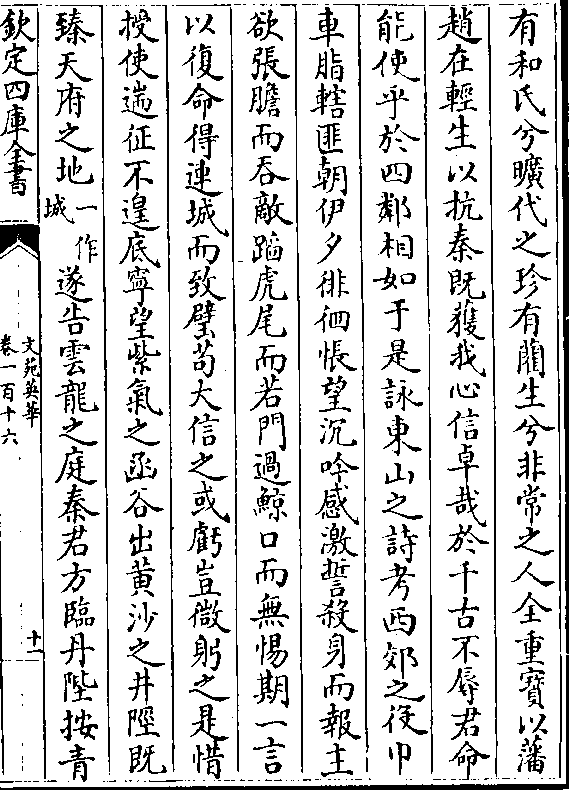 有和氏兮曠代之珍有藺生兮非常之人全重寶以藩
趙在輕生以抗秦既獲我心信卓哉於千古不辱君命
能使乎於四鄰相如于是詠東山之詩考西郊之役巾
車脂轄匪朝伊夕徘徊悵望沉吟感激誓殺身而報主
欲張膽而吞敵蹈虎尾而若門過鯨口而無惕期一言
以復命得連城而致璧苟大信之或虧豈微躬之是惜
授使遄征不遑底寧望紫氣之函谷出黃沙之井陘既
臻天府之地一作城遂告雲龍之庭秦君方臨丹陛按青
欽定四庫全書
文苑英華
卷一百十六
十一